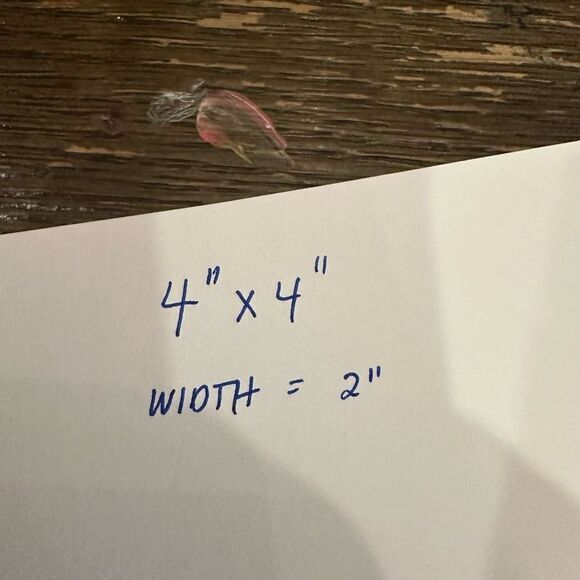 4" x 4"
WIDTH = 2"